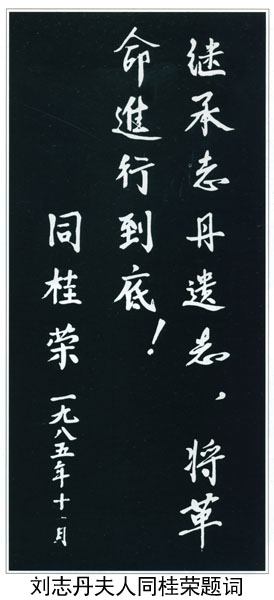 继承志丹遗志，将革
命進行到底！
同桂荣 一九八五年十一月
刘志丹夫人同桂荣题词